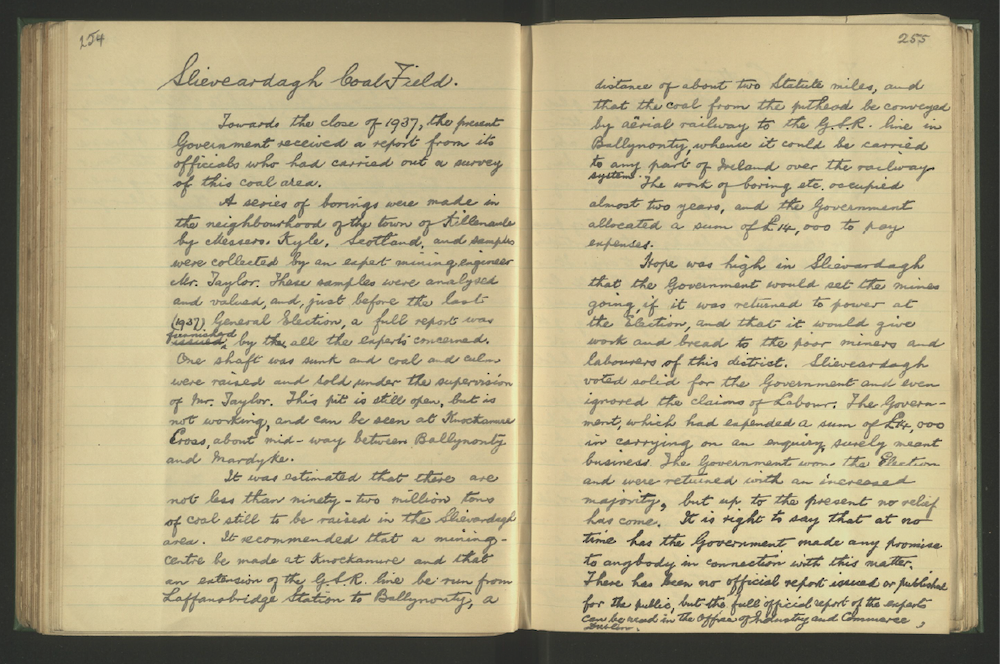 254
Slieveardagh Coal Field.
Towards the close of 1937, the present
Government received a report from its
officials who had carried out a survey
of this coal area.
A series of borings were made in
the neighbourhood of the town of Killenaule
by Messrs. Kyle, Scotland, and samples
were collected by an expert mining engineer
Mr. Taylor. These samples were analysed
and valued, and, just before the last
(1937) General Election, a full report was
furnished
issued, by the all the experts concerned.
One shaft was sunk and coal and culm
were raised and sold under the supervision
of Mr. Taylor. This pit is still open, but is
not working, and can be seen at Knockamure
Cross, about mid-way between Ballynonty
and Mardyke.
It was estimated that there are
not less than ninety-two million tons
of coal still to be raised in the Slievardagh
area. It recommended that a mining-
centre be made at Knockamure and that
an extension of the G.S.R. line be run from
Laffansbridge Station to Ballynonty, a
255
distance of about two Statute miles, and
that the coal from the pithead be conveyed
by aërial railway to the G.S.R. line in
Ballynonty, whence it could be carried
to any part of Ireland over the railway
system. The work of boring etc. occupied
almost two years, and the Government
allocated a sum of £14,000 to pay
expenses.
Hope was high in Slievardagh
that the Government would set the mines
going, if it was returned to power at
the Election, and that it would give
work and bread to the poor miners and
labourers of this district. Slieveardagh
voted solid for the Government and even
ignored the claims of Labour. The Govern-
ment, which had expended a sum of £14,000
in carrying on an enquiry, surely meant
business. The Government won the Election
and were returned with an increased
majority, but up to the present no relief
has come. It is right to say that at no
time has the Government made any promise
to anybody in connection with this matter.
There has been no official report issued or published
for the public, but the full official report of the experts
can be read in the Office of Industry and Commerce,
Dublin.